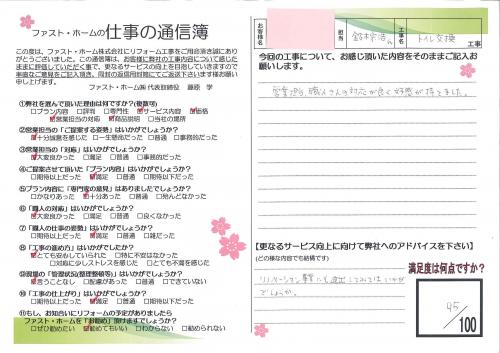 ファスト・ホームの仕事の通信簿
この度は、ファスト・ホーム株式会社にリフォーム工事をご用命頂き誠にあり
がとうございました。この通信簿は、お客様に弊社の工事内容について感じた
ままに評価していただく事で、更なるサービスの向上を目指していきますので
率直なご意見をご記入頂き、同封の返信用封筒にてご返送下さいます様お願い
申し上げます。
ファスト・ホーム㈱ 代表取締役 藤原 学
①弊社を選んで頂いた理由は何ですか?(複数可)
□プラン内容 □評判 □専門性 ☑サービス内容 ☑価格
□営業担当の対応 ☑商品説明 □当社の場所
②営業担当の「ご提案する姿勢」はいかがでしょうか?
☑十分誠意を感じた □一生懸命だった □普通 □事務的だった
③営業担当の「対応」はいかがでしょうか?
☑大変良かった □満足 □普通 □事務的だった
④ご提案させて頂いた「プラン内容」はいかがでしょうか?
□期待以上だった ☑満足 □普通 □期待以下だった
⑤プラン内容に「専門家の意見」はありましたでしょうか?
□かなりあった ☑十分あった □普通 □殆んどなかった
⑥「職人の対応」はいかがでしょうか?
☑大変良かった □満足 □普通 □良くなかった
⑦「職人の仕事の姿勢」はいかがでしょうか?
□期待以上だった ☑満足 □普通 □雑だった
⑧「工事の進め方」はいかがでしたか?
☑とても安心していられた □特に不安はなかった
□対応に少しストレスを感じた □とても不満を感じた
⑨現場の「管理状況(整理整頓等)」はいかがでしょうか?
☑言うことなし □配慮があった □普通 □できていない
⑩「工事の仕上がり」はいかがでしょうか?
□期待以上だった ☑満足 □普通 □期待以下だった
⑪もし、お知合いにリフォームの予定がありましたら
ファスト・ホームを「お勧め」頂けますでしょうか?
□ぜひ勧めたい ☑勧めてもいい □わからない □勧められない
お客様名
鈴木宏浩
工事名
トイレ交換
工事
今回の工事について、お感じ頂いた内容をそのままご記入お
願いします。
営業担当、職人さんの対応が良く好感が持てました。
【更なるサービス向上に向けて弊社へのアドバイスを下さい】
(どの様な内容でも結構です)
リノベーション事業にも進出してみてはいかが
でしょうか。
満足度は何点ですか?
95
/100